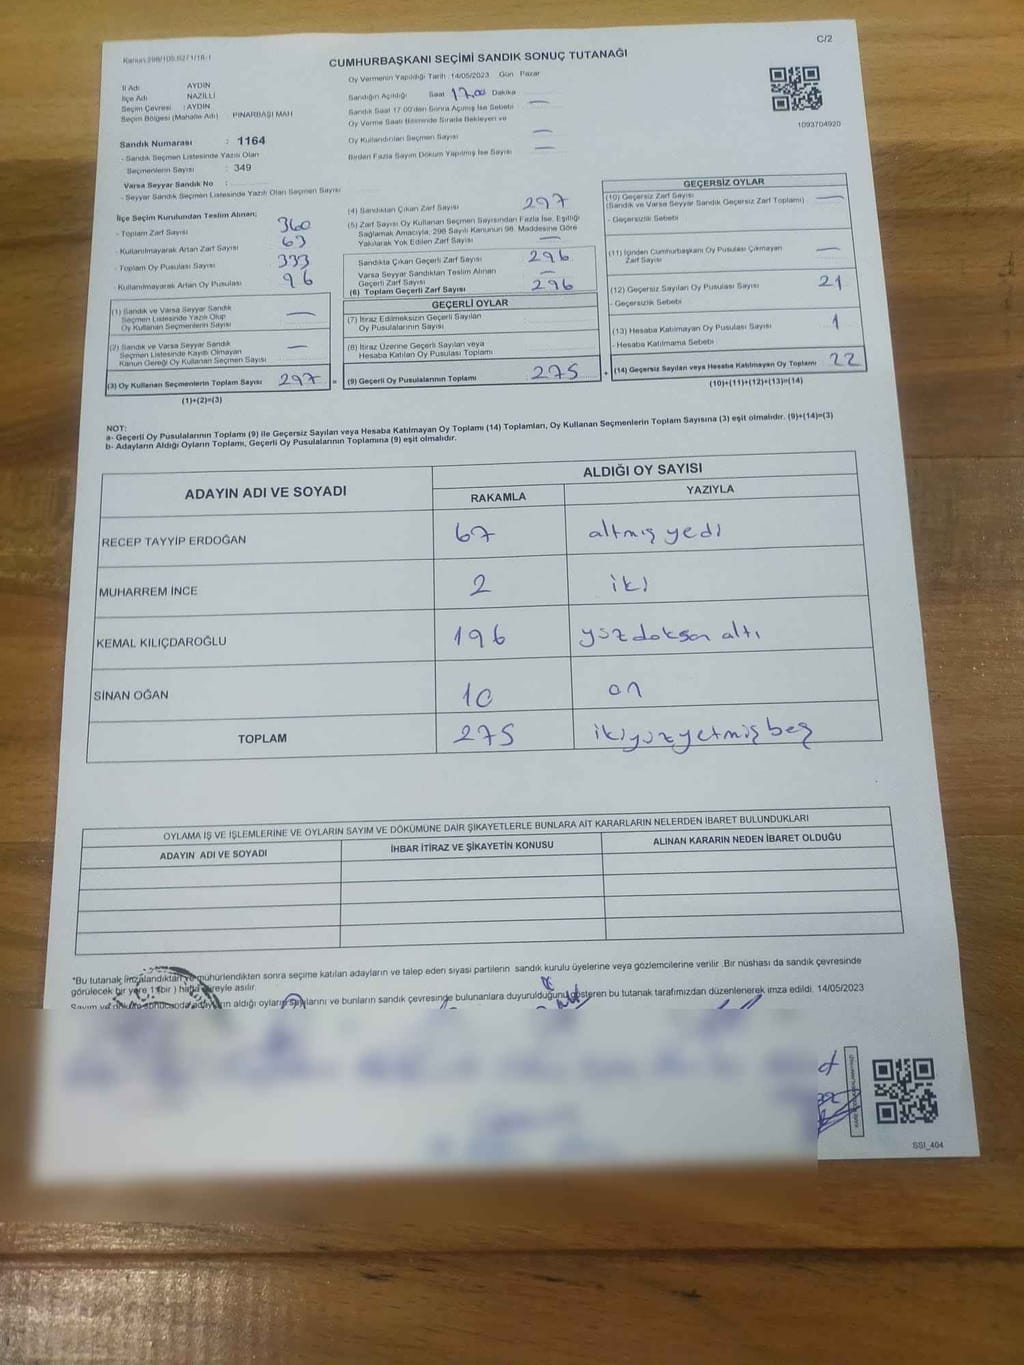 C/2
CUMHURBAŞKANI SEÇİMİ SANDIK SONUÇ TUTANAĞI
İl Adı AYDIN
İlçe Adı NAZİLLİ
Seçim Çevresi : AYDIN
Seçim Bölgesi (Mahalle Adı) : PINARBAŞI MAH
Oy Vermenin Yapıldığı Tarih :14/05/2023 Gün Pazar
Sandığın Açıldığı Saat 17.00 Dakika
Sandık Saat 17:00'den Sonra Açılmış İse Sebebi —
Oy Verme Saati Bitiminde Sırada Bekleyen ve
Oy Kullandırılan Seçmen Sayısı —
Birden Fazla Sayım Döküm Yapılmış İse Sayısı —
1093704920
Sandık Numarası : 1164
- Sandık Seçmen Listesinde Yazılı Olan
Seçmenlerin Sayısı : 349
Varsa Seyyar Sandık No :
- Seyyar Sandık Seçmen Listesinde Yazılı Olan Seçmen Sayısı
İlçe Seçim Kurulundan Teslim Alınan:
- Toplam Zarf Sayısı 360
- Kullanılmayarak Artan Zarf Sayısı 63
- Toplam Oy Pusulası Sayısı 333
- Kullanılmayarak Artan Oy Pusulası 96
(1) Sandık ve Varsa Seyyar Sandık
Seçmen Listesinde Yazılı Olup
Oy Kullanan Seçmenlerin Sayısı —
(2) Sandık ve Varsa Seyyar Sandık
Seçmen Listesinde Kayıtlı Olmayan
Kanun Gereği Oy Kullanan Seçmen Sayısı —
(3) Oy Kullanan Seçmenlerin Toplam Sayısı 297 =
(1)+(2)=(3)
(4) Sandıktan Çıkan Zarf Sayısı 297
(5) Zarf Sayısı Oy Kullanan Seçmen Sayısından Fazla İse, Eşitliği
Sağlamak Amacıyla, 298 Sayılı Kanunun 98. Maddesine Göre
Yakılarak Yok Edilen Zarf Sayısı —
Sandıkta Çıkan Geçerli Zarf Sayısı 296
Varsa Seyyar Sandıktan Teslim Alınan
Geçerli Zarf Sayısı —
(6) Toplam Geçerli Zarf Sayısı 296
GEÇERLİ OYLAR
(7) İtiraz Edilmeksizin Geçerli Sayılan
Oy Pusulalarının Sayısı
(8) İtiraz Üzerine Geçerli Sayılan veya
Hesaba Katılan Oy Pusulası Toplamı
(9) Geçerli Oy Pusulalarının Toplamı 275 +
GEÇERSİZ OYLAR
(10) Geçersiz Zarf Sayısı
(Sandık ve Varsa Seyyar Sandık Geçersiz Zarf Toplamı) —
- Geçersizlik Sebebi
(11) İçinden Cumhurbaşkanı Oy Pusulası Çıkmayan
Zarf Sayısı —
(12) Geçersiz Sayılan Oy Pusulası Sayısı 21
- Geçersizlik Sebebi
(13) Hesaba Katılmayan Oy Pusulası Sayısı 1
- Hesaba Katılmama Sebebi
(14) Geçersiz Sayılan veya Hesaba Katılmayan Oy Toplamı 22
(10)+(11)+(12)+(13)=(14)
NOT:
a- Geçerli Oy Pusulalarının Toplamı (9) ile Geçersiz Sayılan veya Hesaba Katılmayan Oy Toplamı (14) Toplamları, Oy Kullanan Seçmenlerin Toplam Sayısına (3) eşit olmalıdır. (9)+(14)=(3)
b- Adayların Aldığı Oyların Toplamı, Geçerli Oy Pusulalarının Toplamına (9) eşit olmalıdır.
ADAYIN ADI VE SOYADI ALDIĞI OY SAYISI
RAKAMLA YAZIYLA
RECEP TAYYİP ERDOĞAN 67 altmış yedi
MUHARREM İNCE 2 iki
KEMAL KILIÇDAROĞLU 196 yüzdoksan altı
SİNAN OĞAN 10 on
TOPLAM 275 ikiyüzyetmişbeş
OYLAMA İŞ VE İŞLEMLERİNE VE OYLARIN SAYIM VE DÖKÜMÜNE DAİR ŞİKAYETLERLE BUNLARA AİT KARARLARIN NELERDEN İBARET BULUNDUKLARI
ADAYIN ADI VE SOYADI İHBAR İTİRAZ VE ŞİKAYETİN KONUSU ALINAN KARARIN NEDEN İBARET OLDUĞU
*Bu tutanak imzalandıktan ve mühürlendikten sonra seçime katılan adayların ve talep eden siyasi partilerin sandık kurulu üyelerine veya gözlemcilerine verilir .Bir nüshası da sandık çevresinde
görülecek bir yere 1 (bir ) hafta süreyle asılır.
aldığı oyların sayılarını ve bunların sandık çevresinde bulunanlara duyurulduğunu gösteren bu tutanak tarafımızdan düzenlenerek imza edildi. 14/05/2023
SSI_404